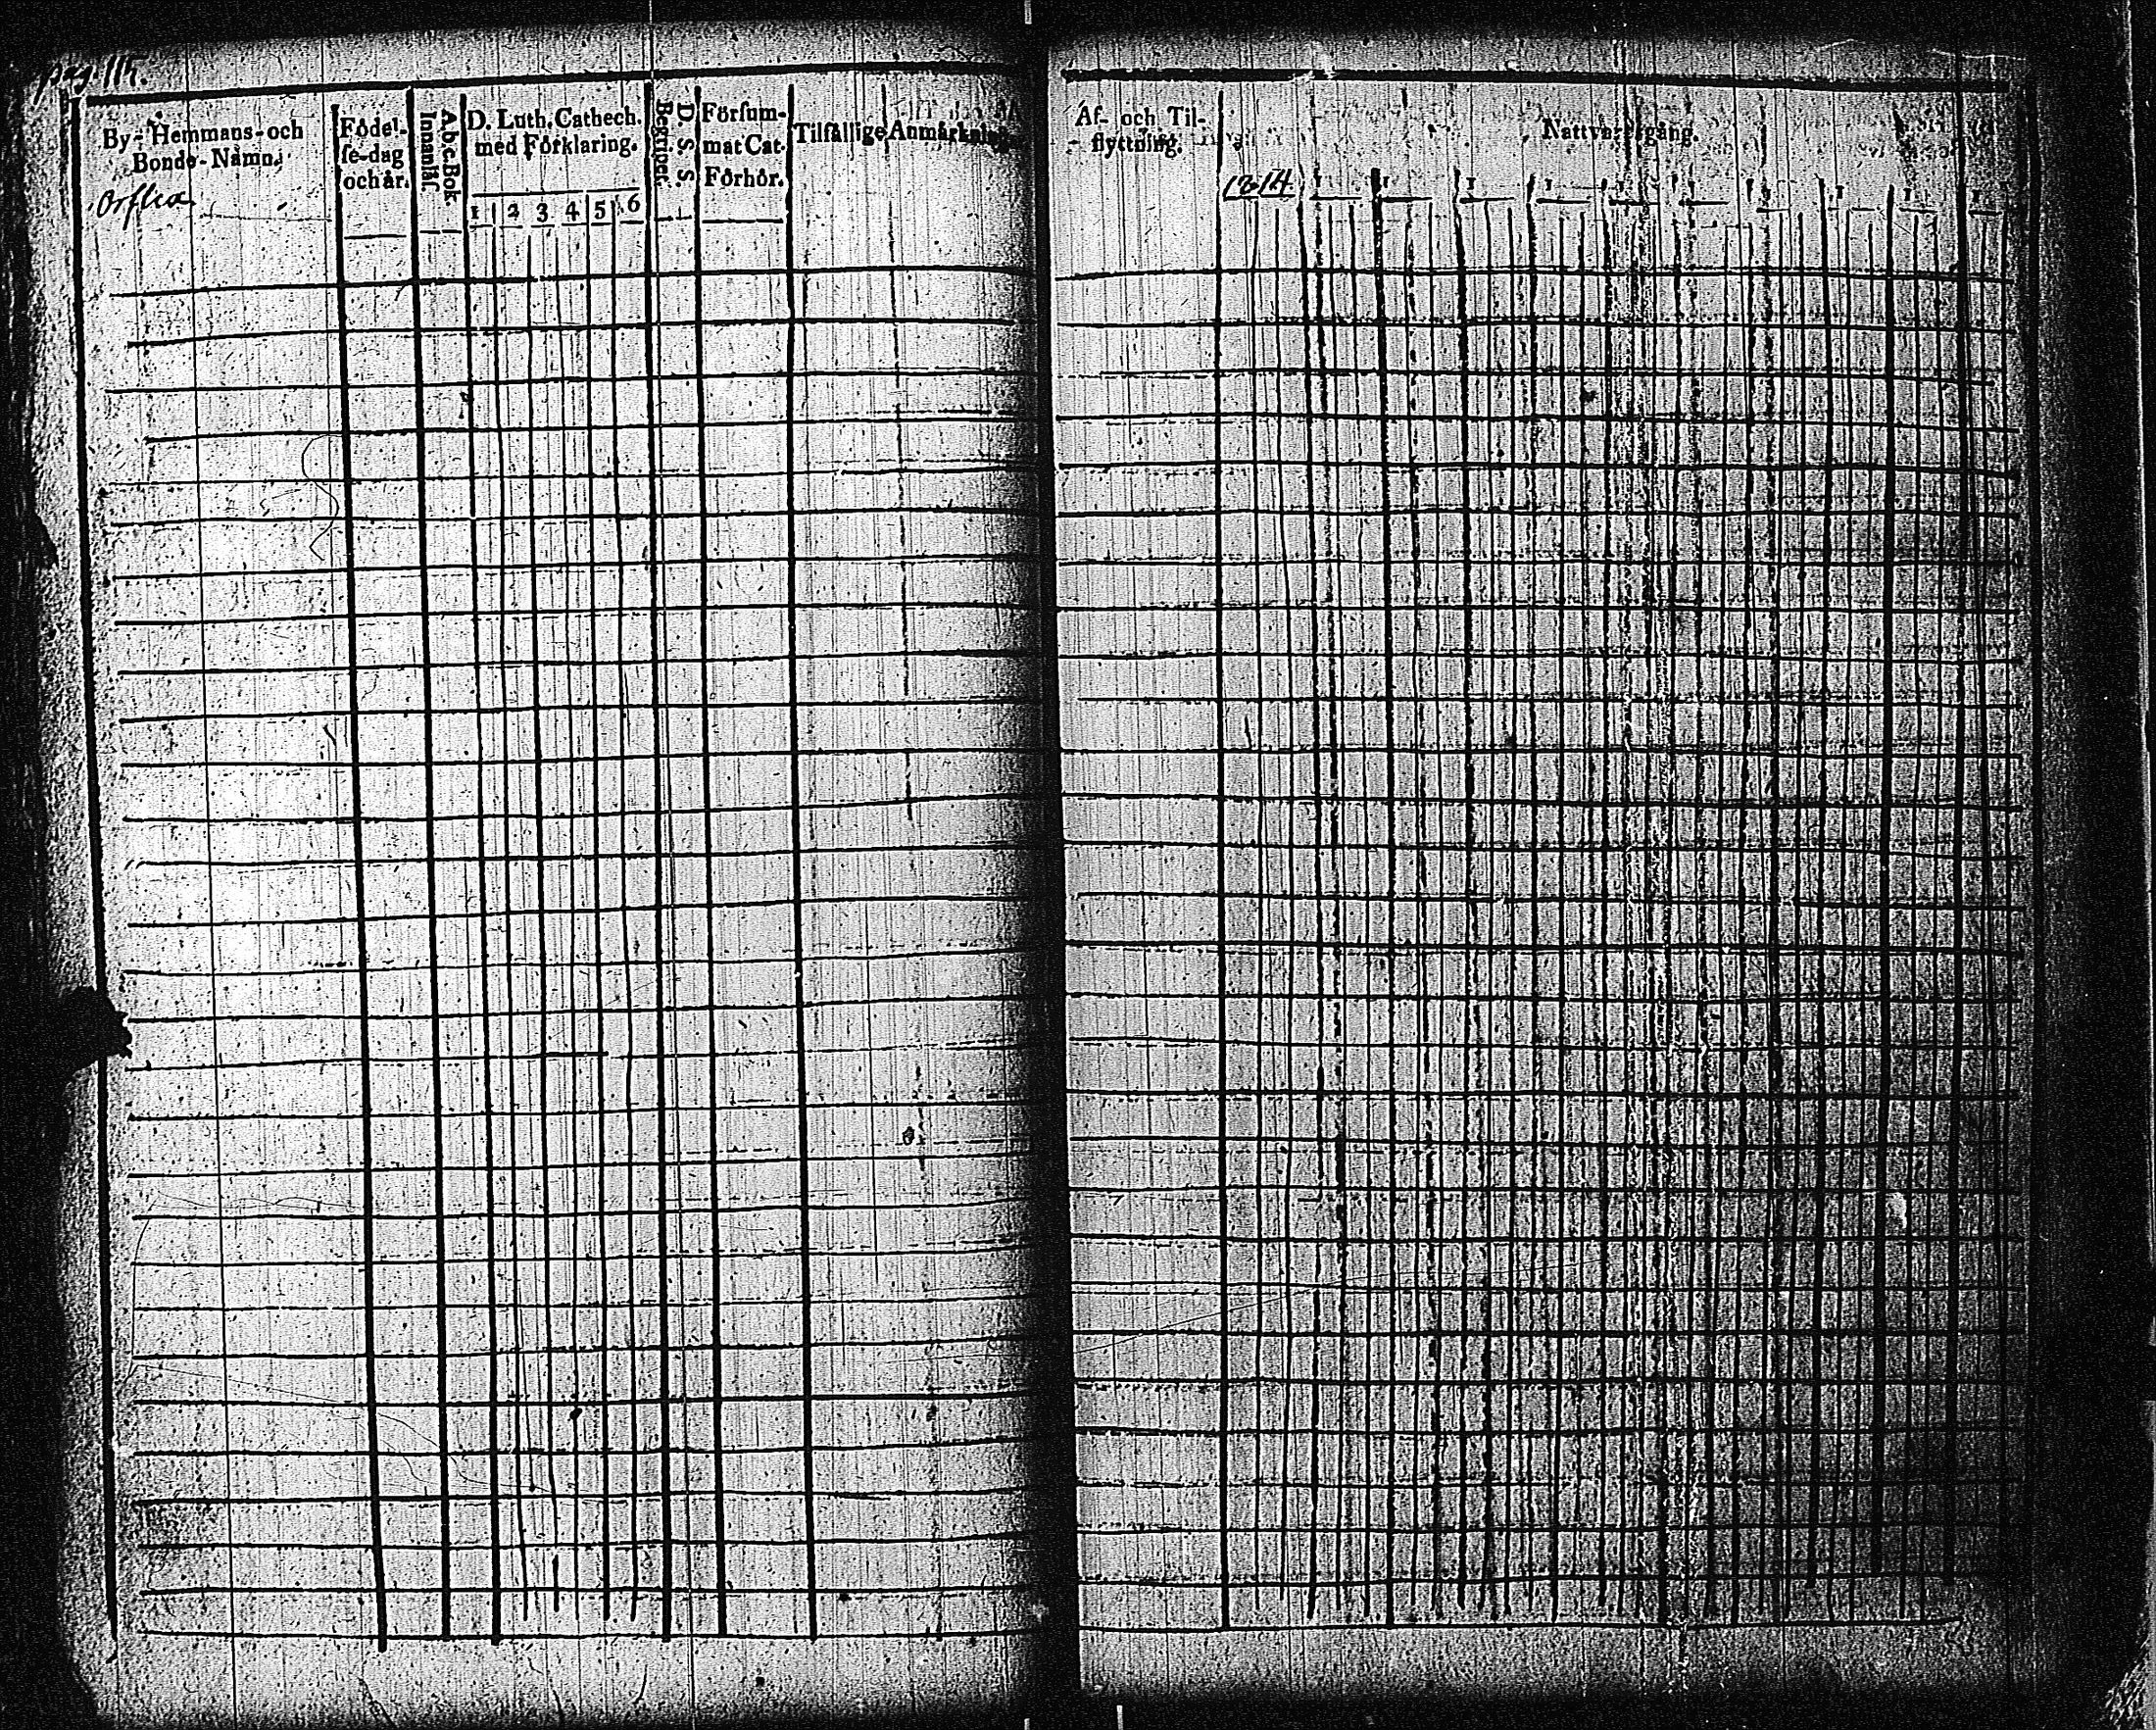 pag. 115.
By-Hemmans-och
Bonde-Namn.
Födel-
se-dag
och år.
A.b.c.Bok
Innanläs.
D. Luth. Cathech.
med Förklaring.
1 2 3 4 5 6
D. S. S.
Begriper.
Försum-
mat Cat.
Förhör.
Tilfällige Anmärkningar
Af- och Til-
flyttning.
Nattvardsgång.
1 1 1 1 1 1 1 1 1 1